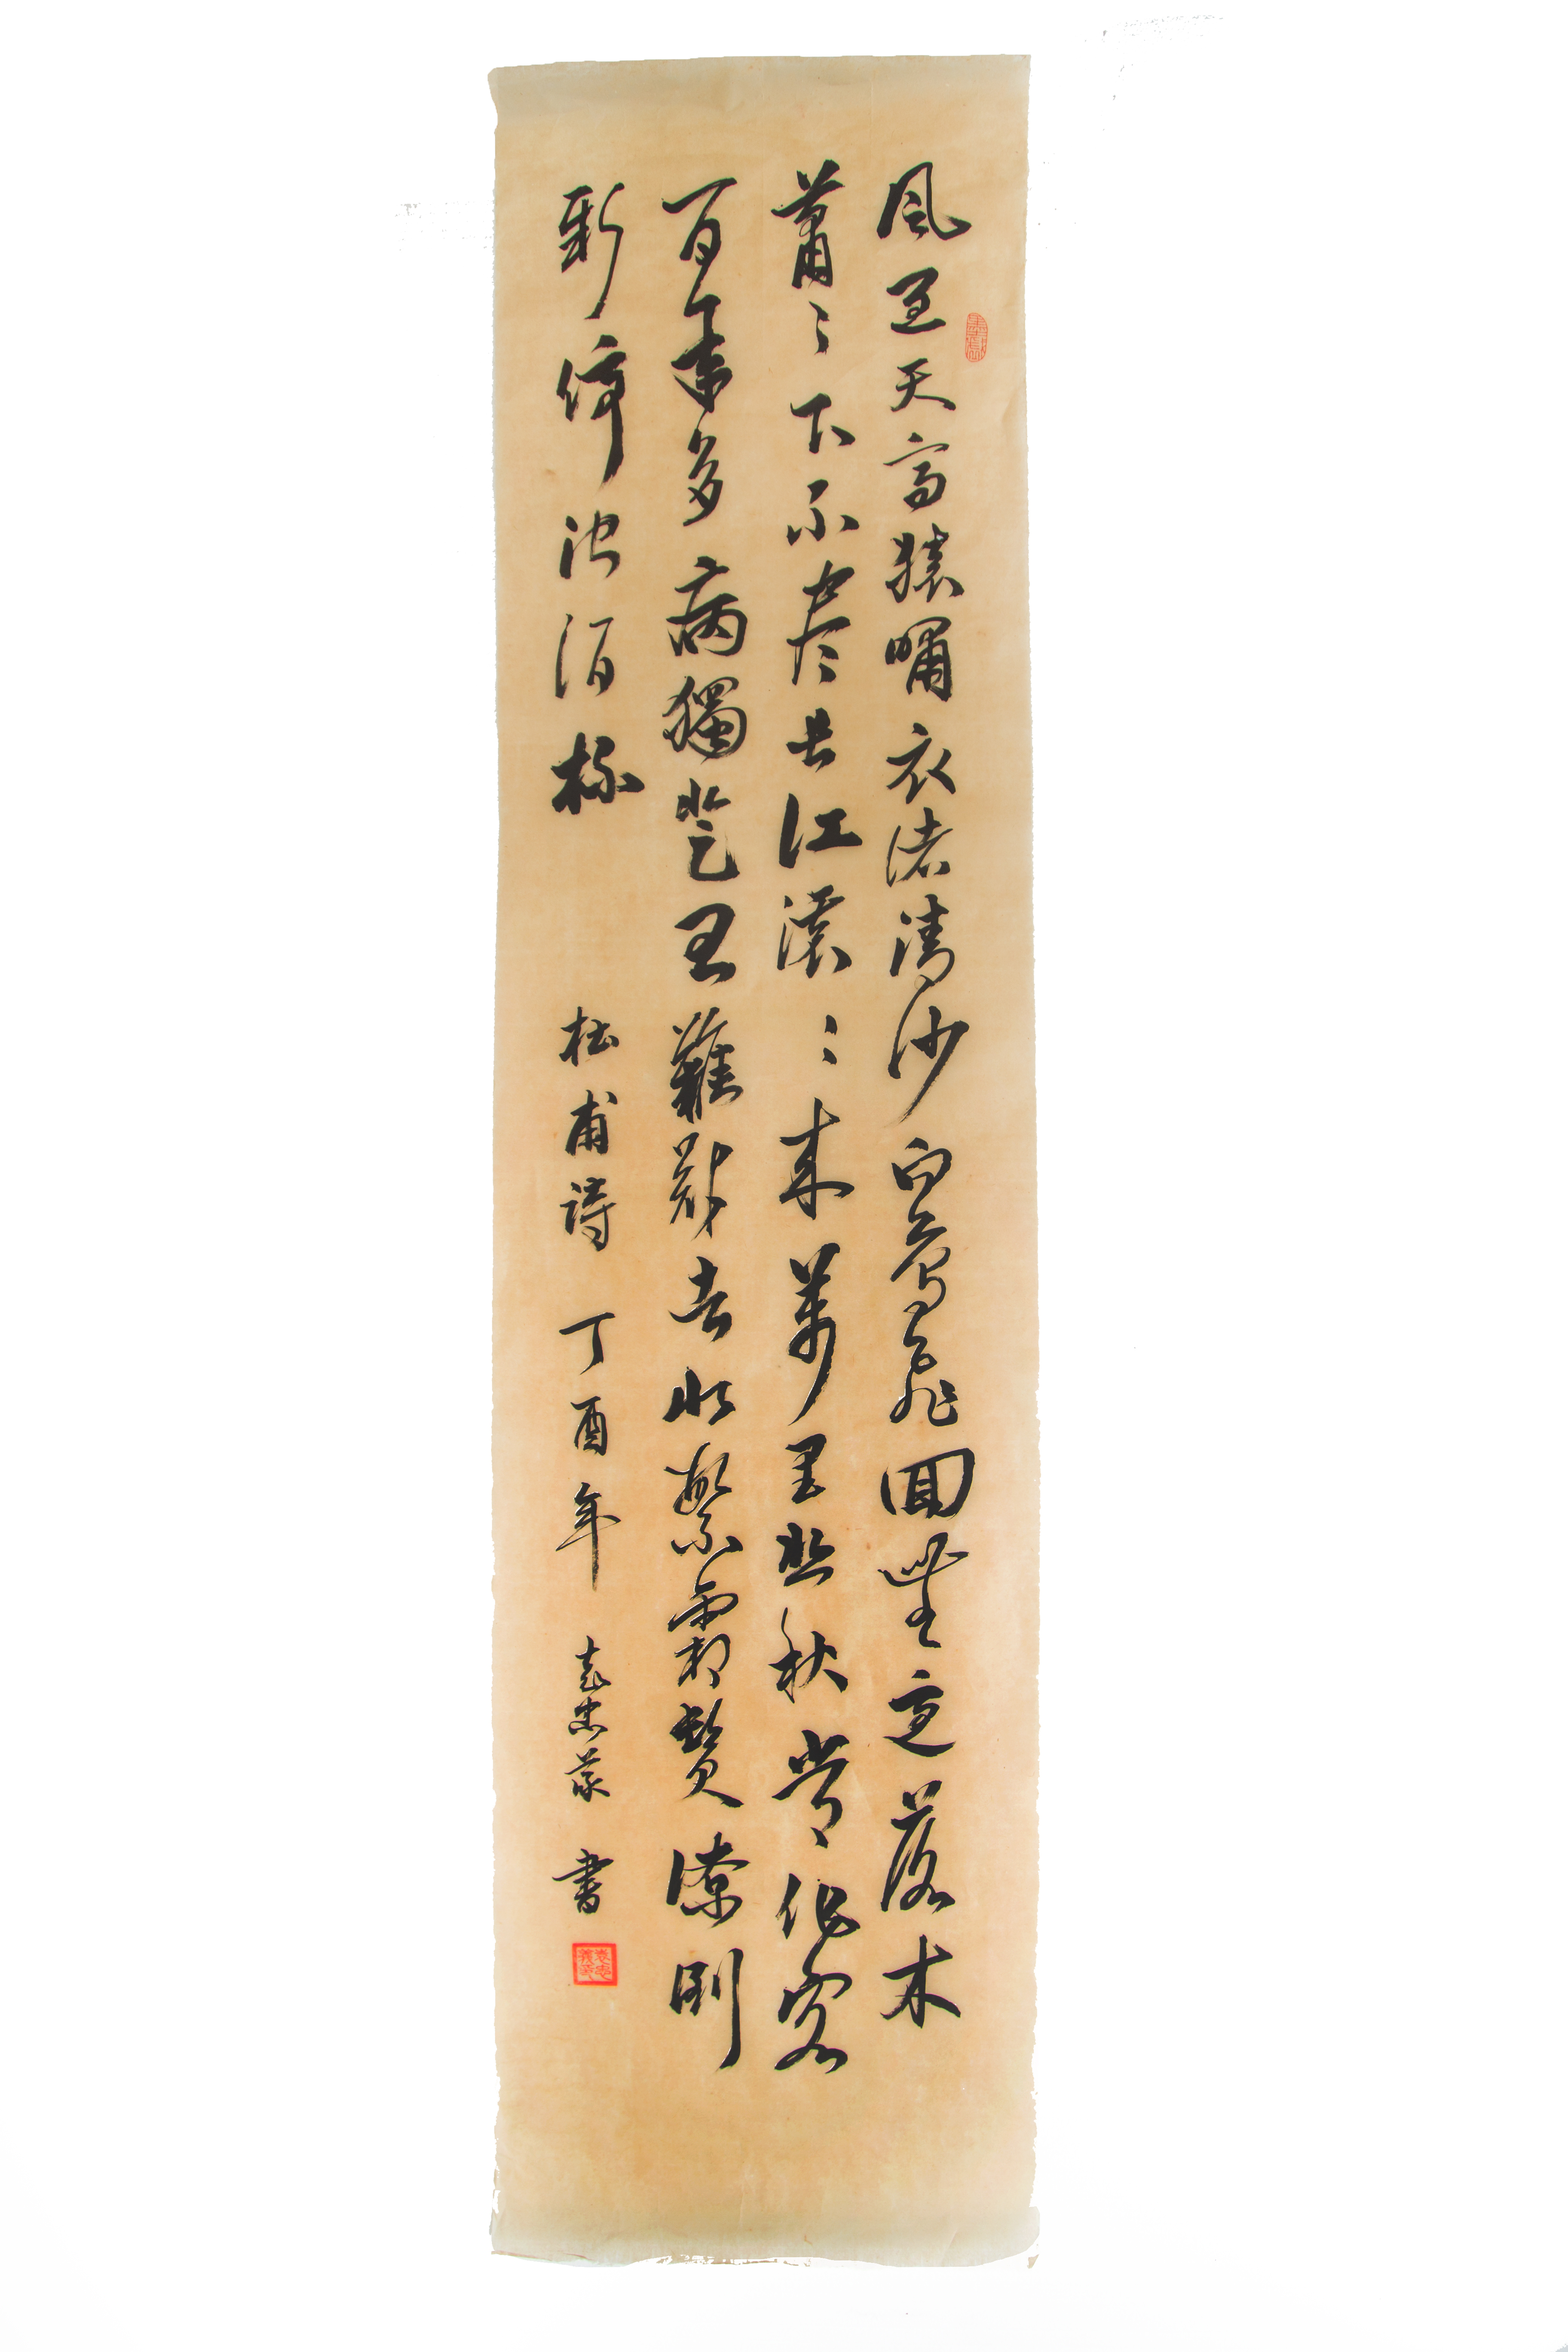 风急天高猿嘯衣渚清沙白鳥飛回無邊落木
蕭〻下不尽长江滚〻来萬里悲秋常作客
百年多病獨登臺艱難苦恨繁霜鬢潦倒
新停浊酒杯 杜甫詩 丁酉年 書